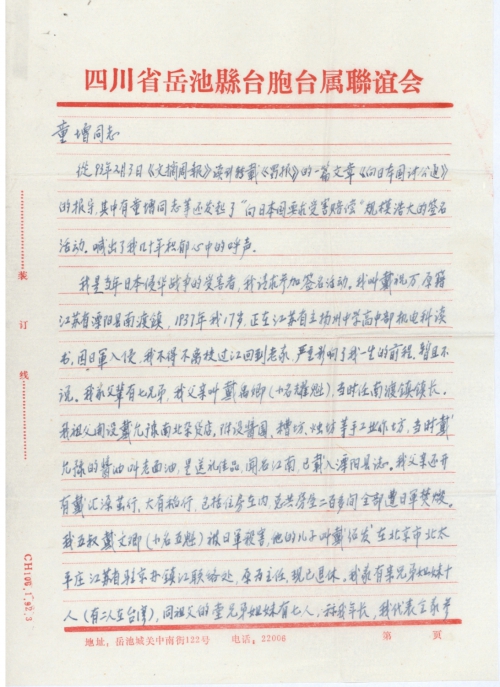 四川省岳池縣台胞台属聯谊会
童增同志
从93年2月3日《文摘周报》读到转载《  报》的一篇文章《向日本国讨公道》
的报导,其中有童增同志等还发起了"向日本国要求受害赔偿"规模浩大的签名
活动。喊出了我几十年积郁心中的呼声。
我是当年日本侵华战争的受害者,我请求参加签名活动。我叫戴祝万 原籍
江苏省溧阳县南渡镇,1937年我17岁,正在江苏省立扬州中学高中部机电科读
书,因日军入侵,我不得不离校过江回到老家,严重影响了我一生的前程,暂且不
说。我家父辈有七兄弟,我父亲叫戴 卿(小名雄魁),当时任南渡镇镇长。
我祖父开设戴允 南北杂货店。附设酱园、糟坊、烛坊等手工业作坊,当时戴
允 的酱油叫老西油,是送礼佳品,闻名江南,已载入溧阳县志。我父亲还开
有戴汇源 行,大有 行,包括住房在内 总共房屋二百多间全部遭日军焚燬。
我五叔戴文卿(小名五魁)被日军杀害,他的儿子叫戴 发 在北京市北太
平庄江苏省驻京办镇江联络处,原为主任,现已退休。我家有亲兄弟姐妹十
人(有二人在台湾),同祖父的堂兄弟姐妹有七人,我年长,我代表全家并
装
订
线
CH100.1.92.3
地址:岳池城关中南街122号 电话:22006 第 页